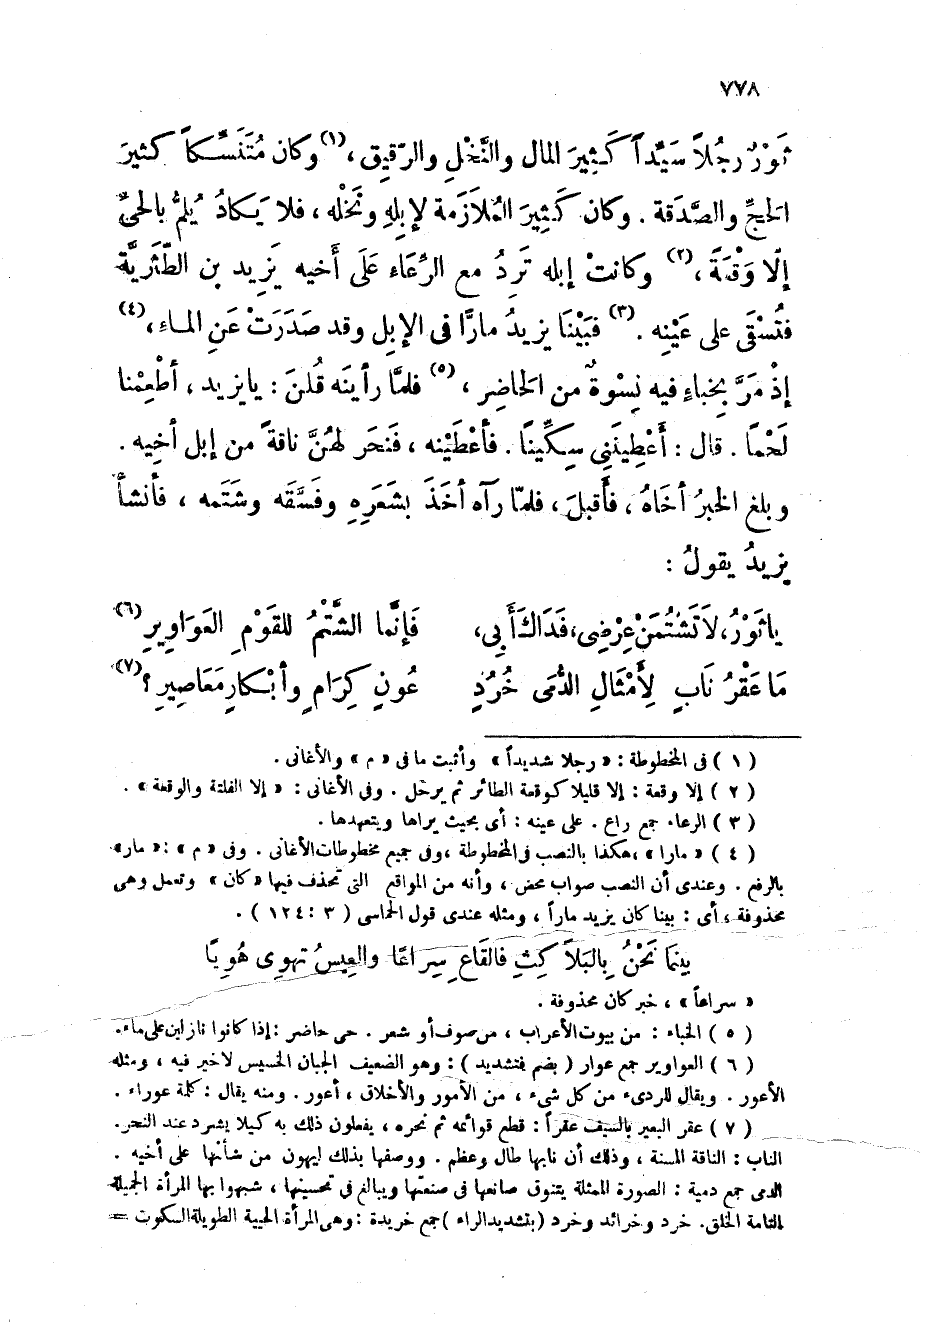 ٧٧٨
ثَوْرٌ رجُلاً سَيِّداً كَثِيرَ المال والنَّخْلِ والرّقيق ،(١) وكان مُتَنَسِّكاً كثيرَ
الحجِّ والصَّدَقة . وكان كَثِيرَ المُلاَزمة لإبلِه ونَخْله ، فلا يَكادُ يُلمُّ بالحىِّ
إلّا وَقْعَةً ،(٢) وكانتْ إبله تَرِدُ مع الرِّعَاء عَلَى أَخيه يَزِيد بن الطَّثَريَّة
فتُسْقَى على عَيْنِه .(٣) فبَيْنَا يزيدُ مارًّا فى الإبل وقد صَدَرَتْ عَنِ الماء ،(٤)
إذْ مَرَّ بِخباءِ فيه نِسْوةٌ من الحَاضِر ،(٥) فلمَّا رأينَه قُلنَ : يا يزيد ، أطْعِمْنا
لَحْمًا . قال : أَعْطِينَنِى سِكِّينًا . فأعْطَيْنه ، فَنَحَر لهُنَّ ناقةً من إبل أخِيه .
وبلغ الخبرُ أخَاهُ ، فأَقبلَ ، فلمّا رآه أخَذَ بشَعَرِهِ وفَسَّقَه وشَتَمه ، فأنشأَ
يزيدُ يقولُ :
ياثَوْرُ، لاَ تَشْتُمَنْ عِرْضِى، فَدَاكَ أَبِى، فَإِنَّما الشَّتْمُ للقَوْمِ العَوَاوِيرِ(٦)
مَا عَقْرُ نَابٍ لِأَمْثَالِ الدُّمَى خُرُدٍ عُونٍ كِرَامٍ وأبْكارٍ مَعَاصِيرِ ؟(٧)
( ١ ) فى المخطوطة : « رجلا شديداً » وأثبت ما فى « م » والأغانى .
( ٢ ) إلا وقعة : إلا قليلا كوقعة الطائر ثم يرحل . وفى الأغانى : « إلا الفلتة والوقعة » .
( ٣ ) الرعاء جمع راع . على عينه : أى بحيث يراها ويتعهدها .
( ٤ ) « مارا » ، هكذا بالنصب فى المخطوطة ، وفى جميع مخطوطات الأغانى . وفى « م » : « مار»
بالرفع . وعندى أن النصب صواب محض ، وأنه من المواقع التى تحذف فيها « كان » وتعمل وهى
محذوفة ، أى : بينا كان يزيد ماراً ، ومثله عندى قول الحماسى ( ٣ : ١٢٤ ) .
بينمَا نَحْنُ بِالبَلاَ كِثِ فالقَاعِ سِراعًا والعِيسُ تهوِى هُوِيًّا
« سراعاً » ، خبر كان محذوفة .
( ٥ ) الخباء : من بيوت الأعراب ، من صوف أو شعر . حى حاضر : إذا كانوا نازلين على ماء .
( ٦ ) العواوير جمع عوار ( بضم فتشديد ) : وهو الضعيف الجبان الخسيس لا خير فيه ، ومثله
الأعور . ويقال للردىء من كل شىء ، من الأمور والأخلاق ، أعور . ومنه يقال : كلمة عوراء .
( ٧ ) عقر البعير بالسيف عقراً : قطع قوائمه ثم نحره ، يفعلون ذلك به كيلا يشرد عند النحر.
الناب : الناقة المسنة ، وذلك أن نابها طال وعظم . ووصفها بذلك ليهون من شأنها على أخيه .
الدمى جمع دمية : الصورة الممثلة يتنوق صانعها فى صنعتها ويبالغ فى تحسينها ، شبهوا بها المرأة الجميلة
التامة الخلق. خرد وخرائد وخرد ( بتشديد الراء ) جمع خريدة : وهى المرأة الحيية الطويلة السكوت =